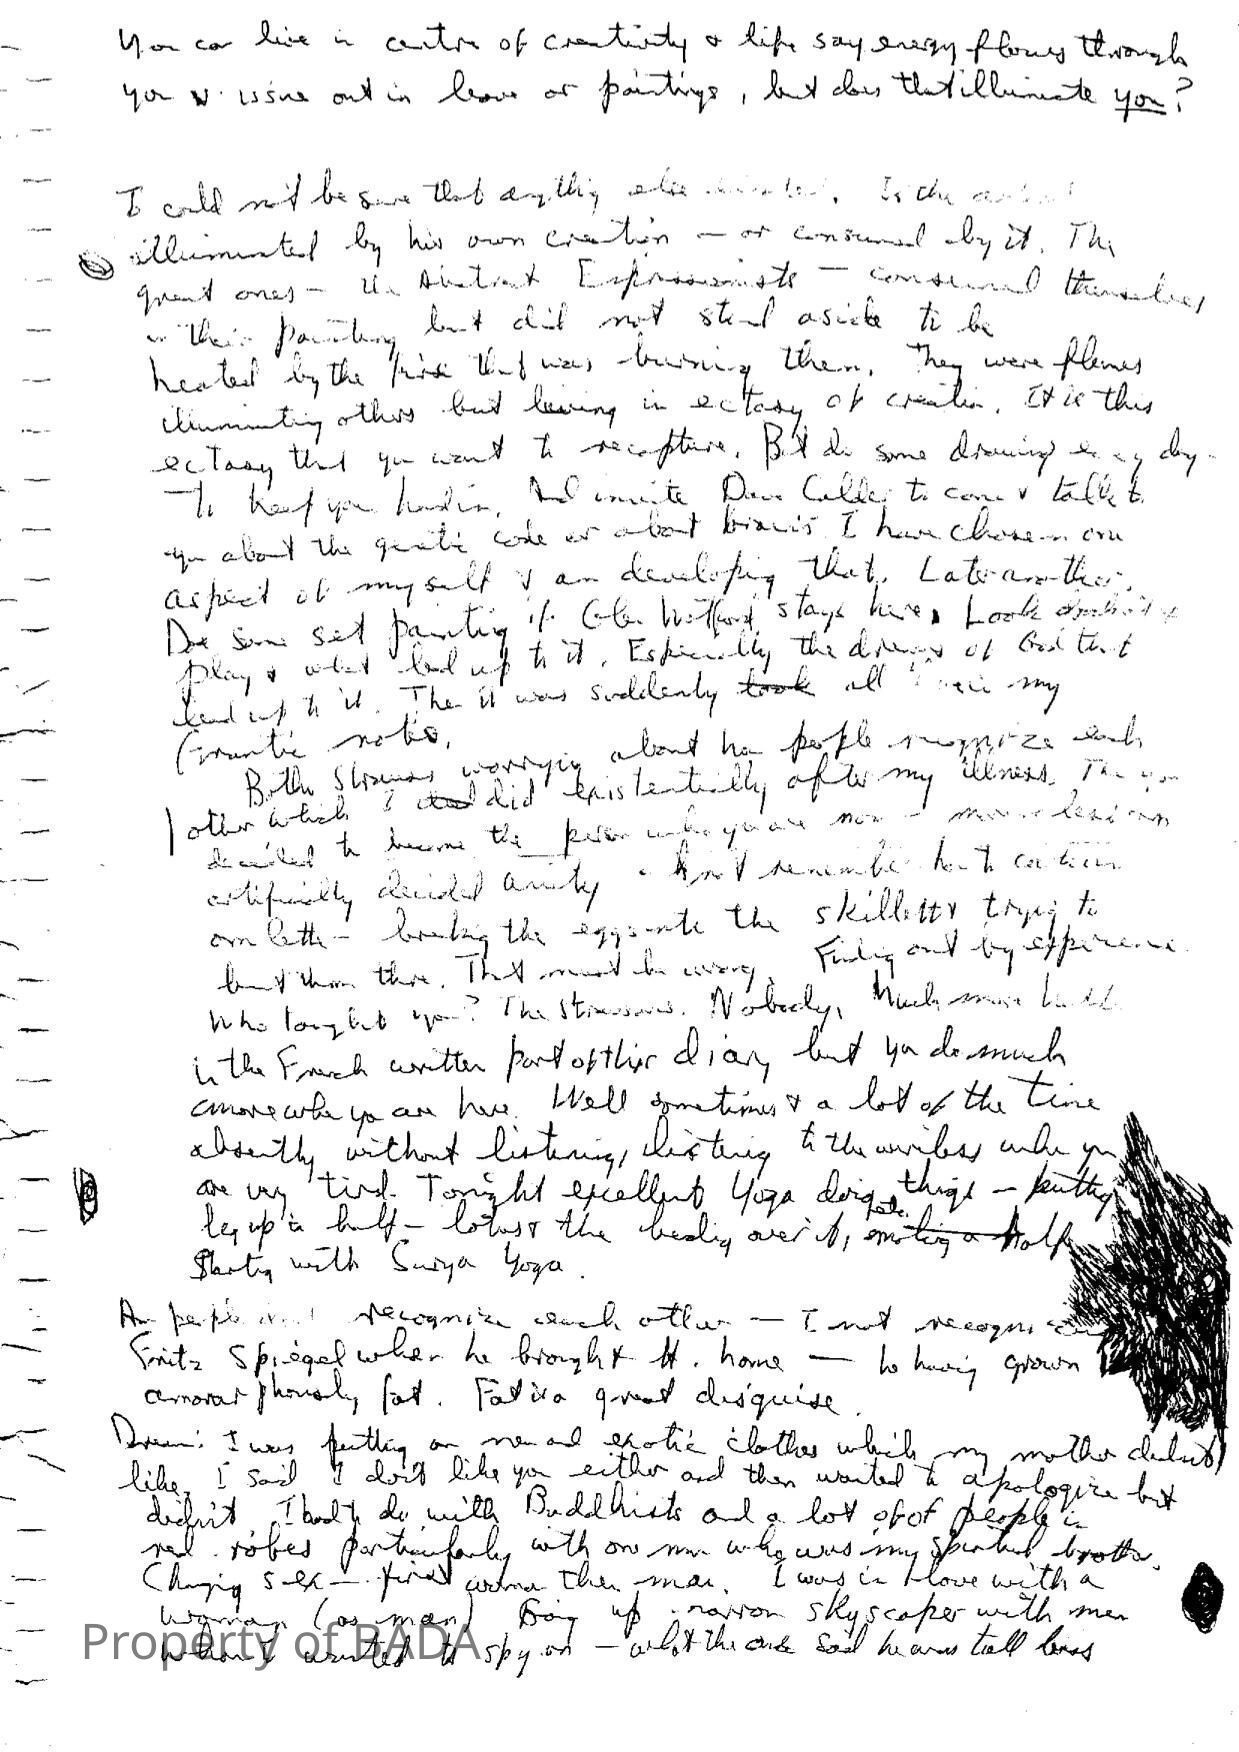 You can live in centre of creativity & life say energy flows through
you & issue out in love or paintings, but does that illuminate you?
I could not be sure that anything else . Is the artist
illuminated by his own creation — or consumed by it. The
great ones — the Abstract Expressionists — consumed themselves
in their painting but did not stand aside to be
heated by the fire that was burning them. They were flames
illuminating others but living in ectasy of creation. It is this
ectasy that you want to recapture. But do some drawing every day –
to keep your hand in. And invite Dave Calder to come & talk to
you about the genetic code or about brains. I have chosen one
aspect of myself & am developing that. Later another.
Do some set painting if stays here. Look
play & what led up to it. Especially the dreams of God that
lead up to it. Then it was suddenly took all in my
notes.
Both Strausses worrying about how people recognize each
other which I did existentially after my illness. Then you
decided to become the person who you are now – more or less an
artificially decided anxiety not remember how to
omlette – breaking the eggs onto the skillet & trying to
beat them there. That must be wrong. Finding out by experience.
Who taught you? The Strausses. Nobody. Much more
in the French written part of this diary but you do much
more who you are here. Well sometimes & a lot of the time
absently without listening, listening to the wireless when you
are very tired. Tonight excellent Yoga doing things – putting
leg up in half – lotus & the bending over it, etc. half
Starting with Surya Yoga.
An people recognize each other — I not recognizing
Fritz Spiegel when he brought H. home — he having grown
amorarphously fat. Fat is a great disguise.
Dream: I was putting on new and exotic clothes which my mother didn't
like. I said I don't like you either and then wanted to apologize but
didn't. I had to do with Buddhists and a lot of of people in
red robes particularly with one man who was my spiritual brother.
Changing sex – first woman then man. I was in love with a
woman (as man) Going up narrow skyscaper with men
whom I wanted to spy on – what the one said he was tall
Property of BADA